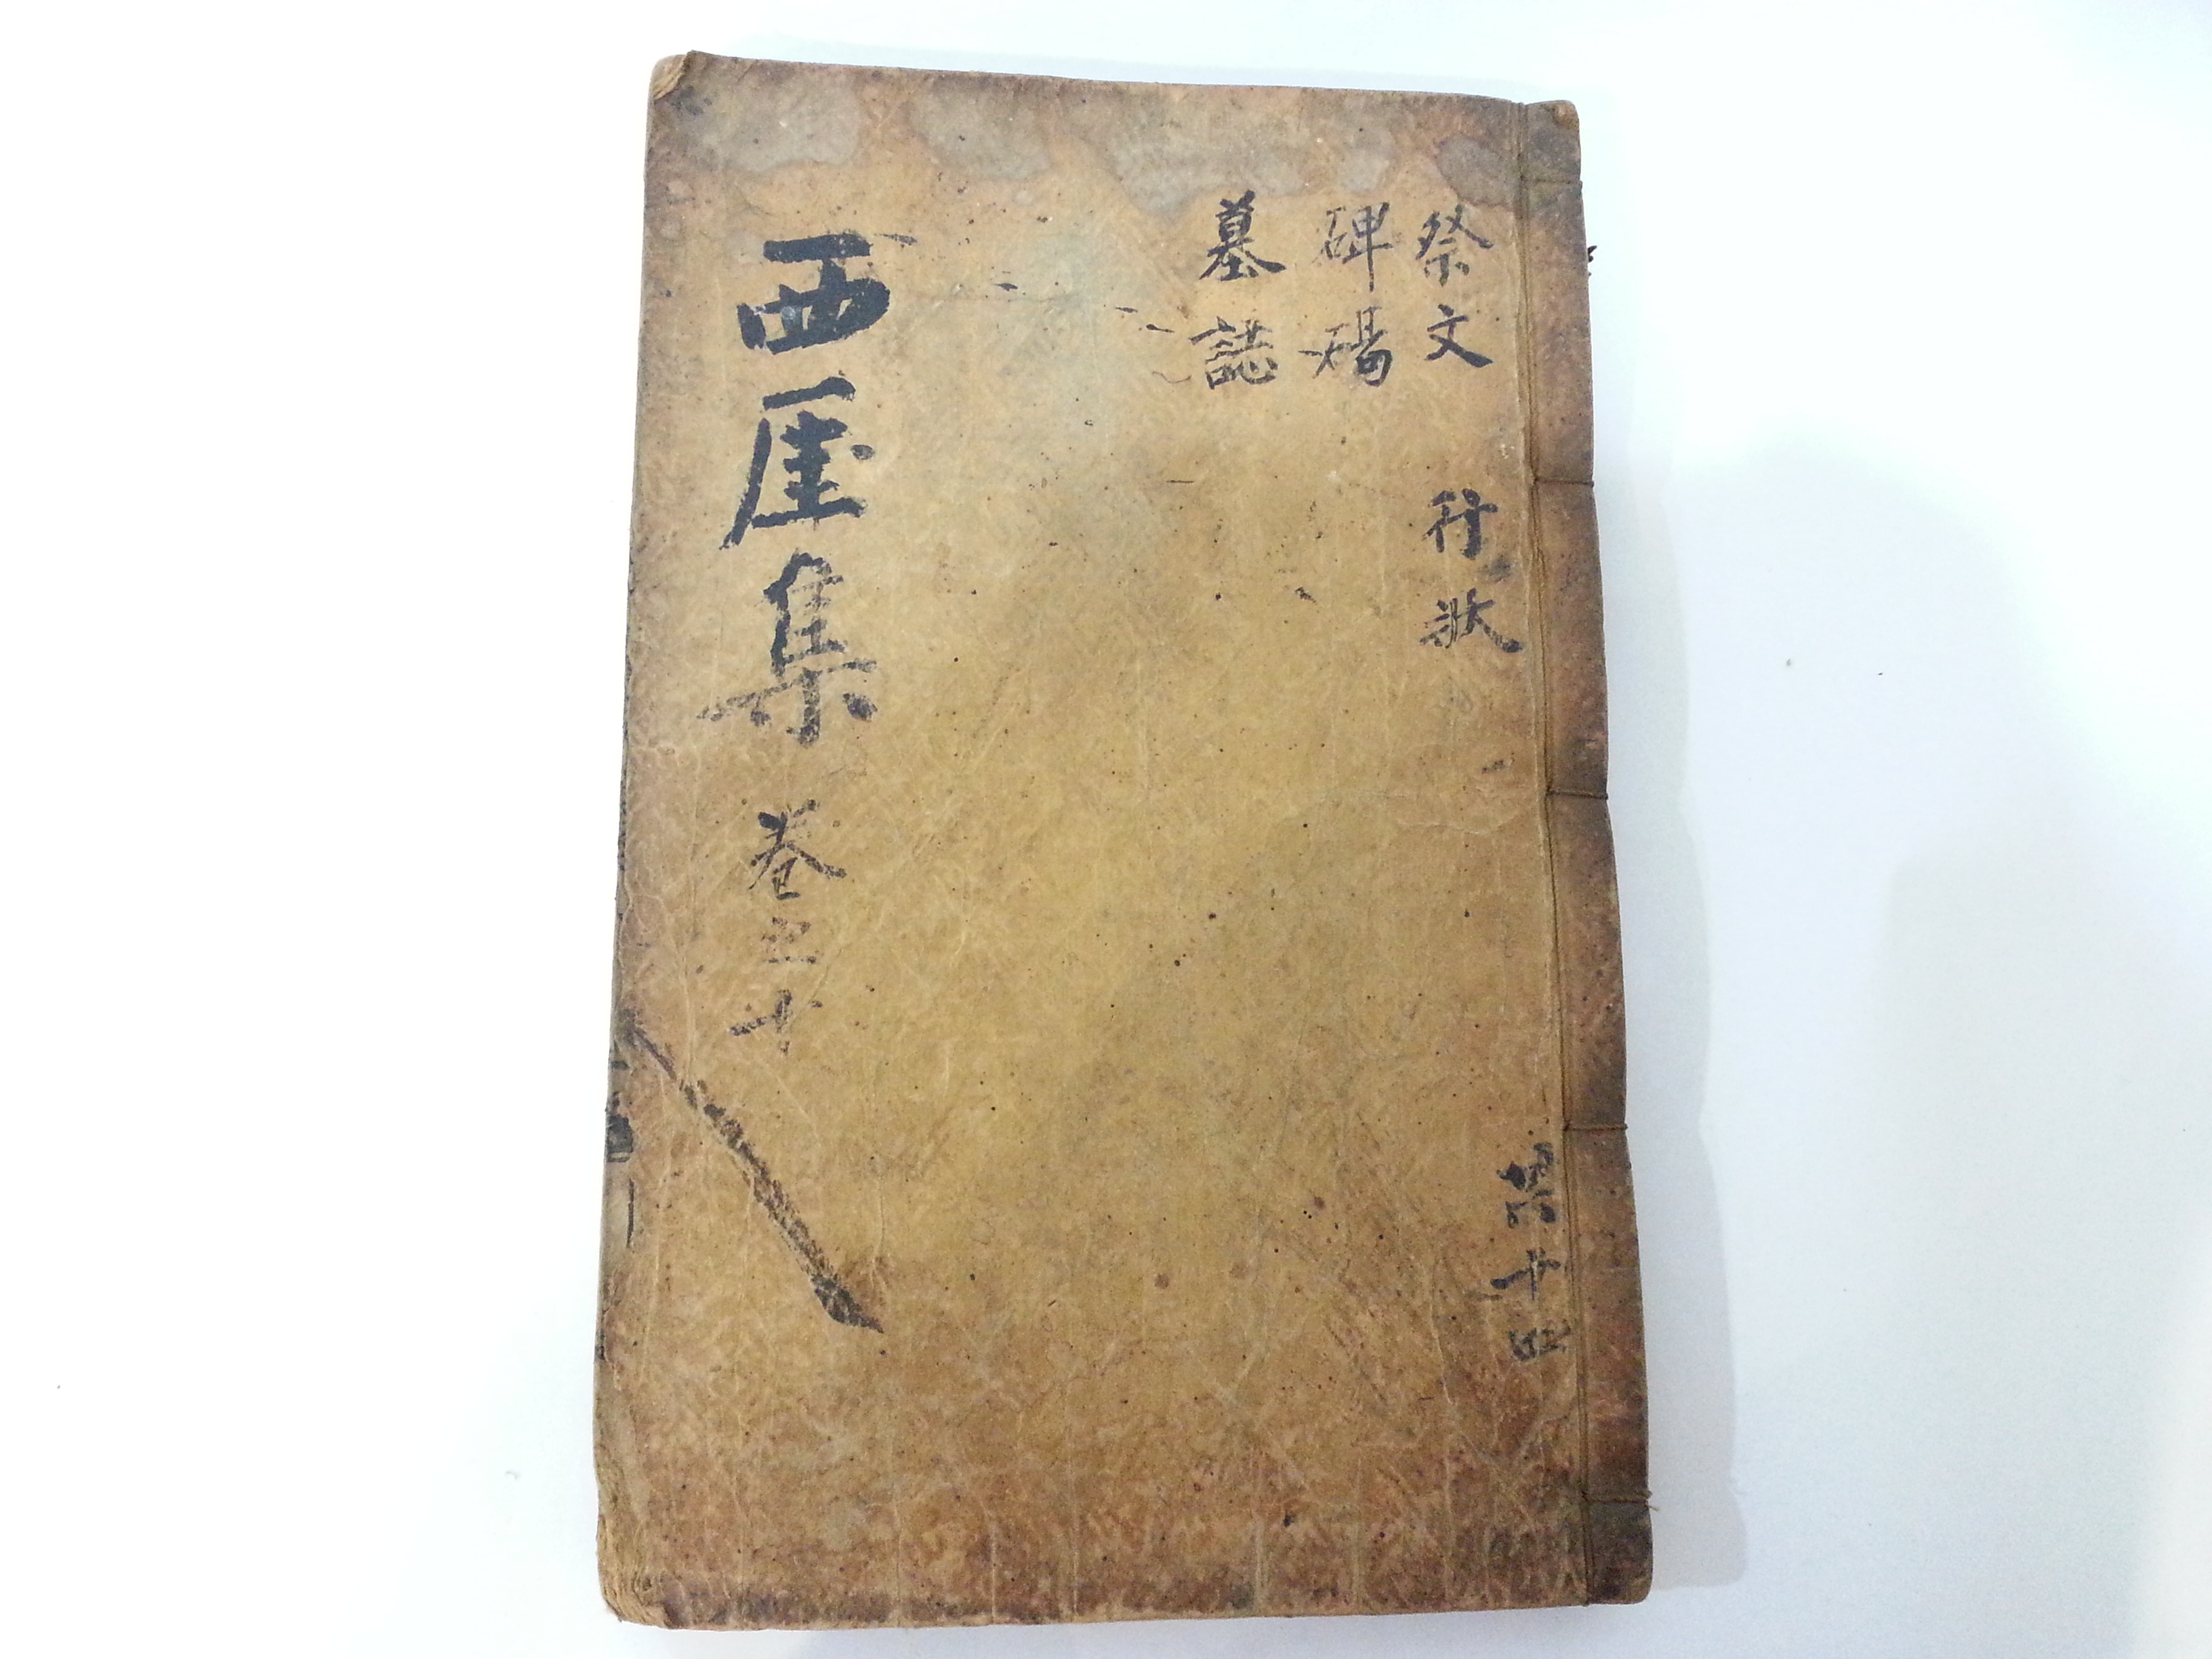 祭文 行狀
碑碣
墓誌
西厓集 卷之十
共十四